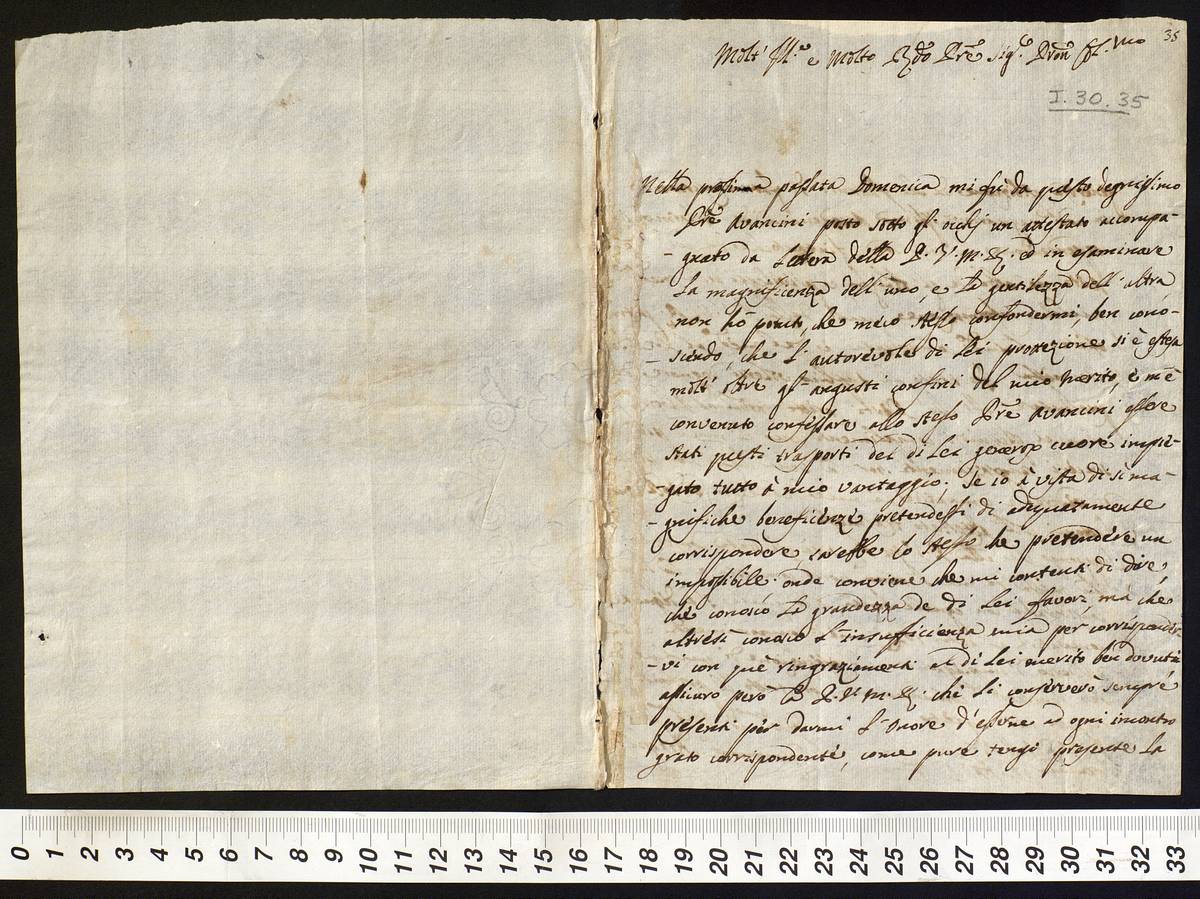 35
Molt' Ill.e e Molto Rdo Pre Sig.e Pron Col.mo
I. 30. 35
Nella prossima passata Domenica mi fù da questo degnissimo
Pre Avancini posto sotto gl' occhj un attestato accompa-
-gnato da Lettera della P. V. M. R. ed in esaminare
la magnificenza dell' uno, e la gentilezza dell' altra
non hò potuto, che meco stesso confondermi, ben cono-
-scendo, che l' autorevole di Lei protezione si è estesa
molt' oltre gl' angusti confini del mio merito, e m'è
convenuto confessare allo stesso Pre Avancini essere
stati questi trasporti del di Lei generoso cuore impie-
-gato tutto à mio vantaggio; Se io à vista di sì ma-
-gnifiche beneficienze pretendessi di adequatamente
corrispondere, sarebbe lo stesso che pretendere un
impossibile. onde conviene che mi contenti di dire,
che conosco la grandezza de di Lei favori, mà che
altresì conosco l' insufficienza mia per corrisponder-
-vi con què ringraziamenti al di Lei merito ben dovuti
assicuro però la P. V. M. R. che li conserverò sempre
presenti per darmi l' onore d' esserne ad ogni incontro
grato corrispondente, come pure tengo presente la
0 1 2 3 4 5 6 7 8 9 10 11 12 13 14 15 16 17 18 19 20 21 22 23 24 25 26 27 28 29 30 31 32 33